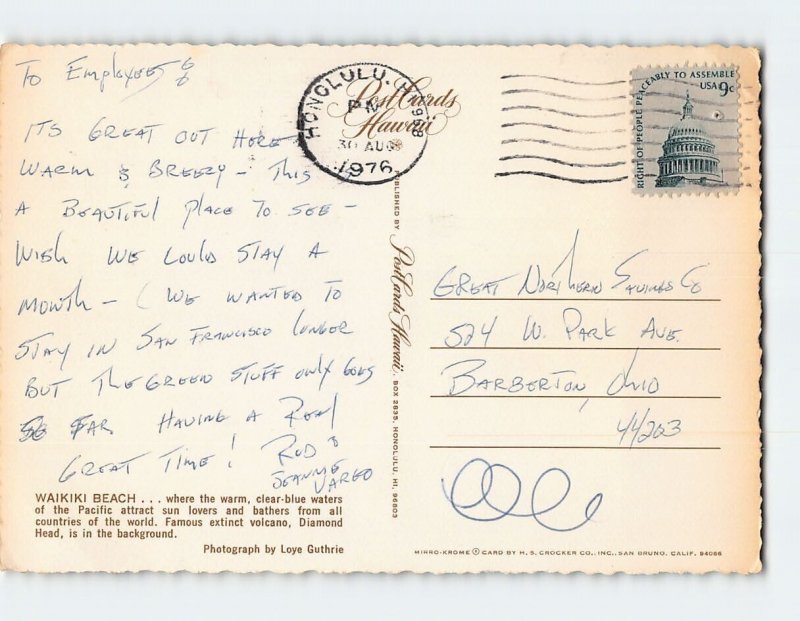 To Employees
ITS GREAT OUT HERE
WARM & BREEZY - This IS
A BEAUTIFUL PLACE TO SEE -
WISH WE COULD STAY A
MONTH - (WE WANTED TO
STAY IN SAN FRANCISCO LONGER
BUT THE GREEN STUFF ONLY GOES
SO FAR HAVING A REAL
GREAT TIME! ROD &
JEANNIE
VARGO
WAIKIKI BEACH . . . where the warm, clear-blue waters
of the Pacific attract sun lovers and bathers from all
countries of the world. Famous extinct volcano, Diamond
Head, is in the background.
Photograph by Loye Guthrie
PostCards
Hawaii
HONOLULU, HI
PM
30 AUG
1976
PUBLISHED BY PostCards Hawaii, BOX 2835, HONOLULU, HI. 96803
RIGHT OF PEOPLE PEACEABLY TO ASSEMBLE
USA 9c
GREAT Northern Savings Co
524 W. PARK AVE.
BARBERTON, Ohio
44203
MIRRO-KROME ® CARD BY H. S. CROCKER CO., INC., SAN BRUNO, CALIF. 94066